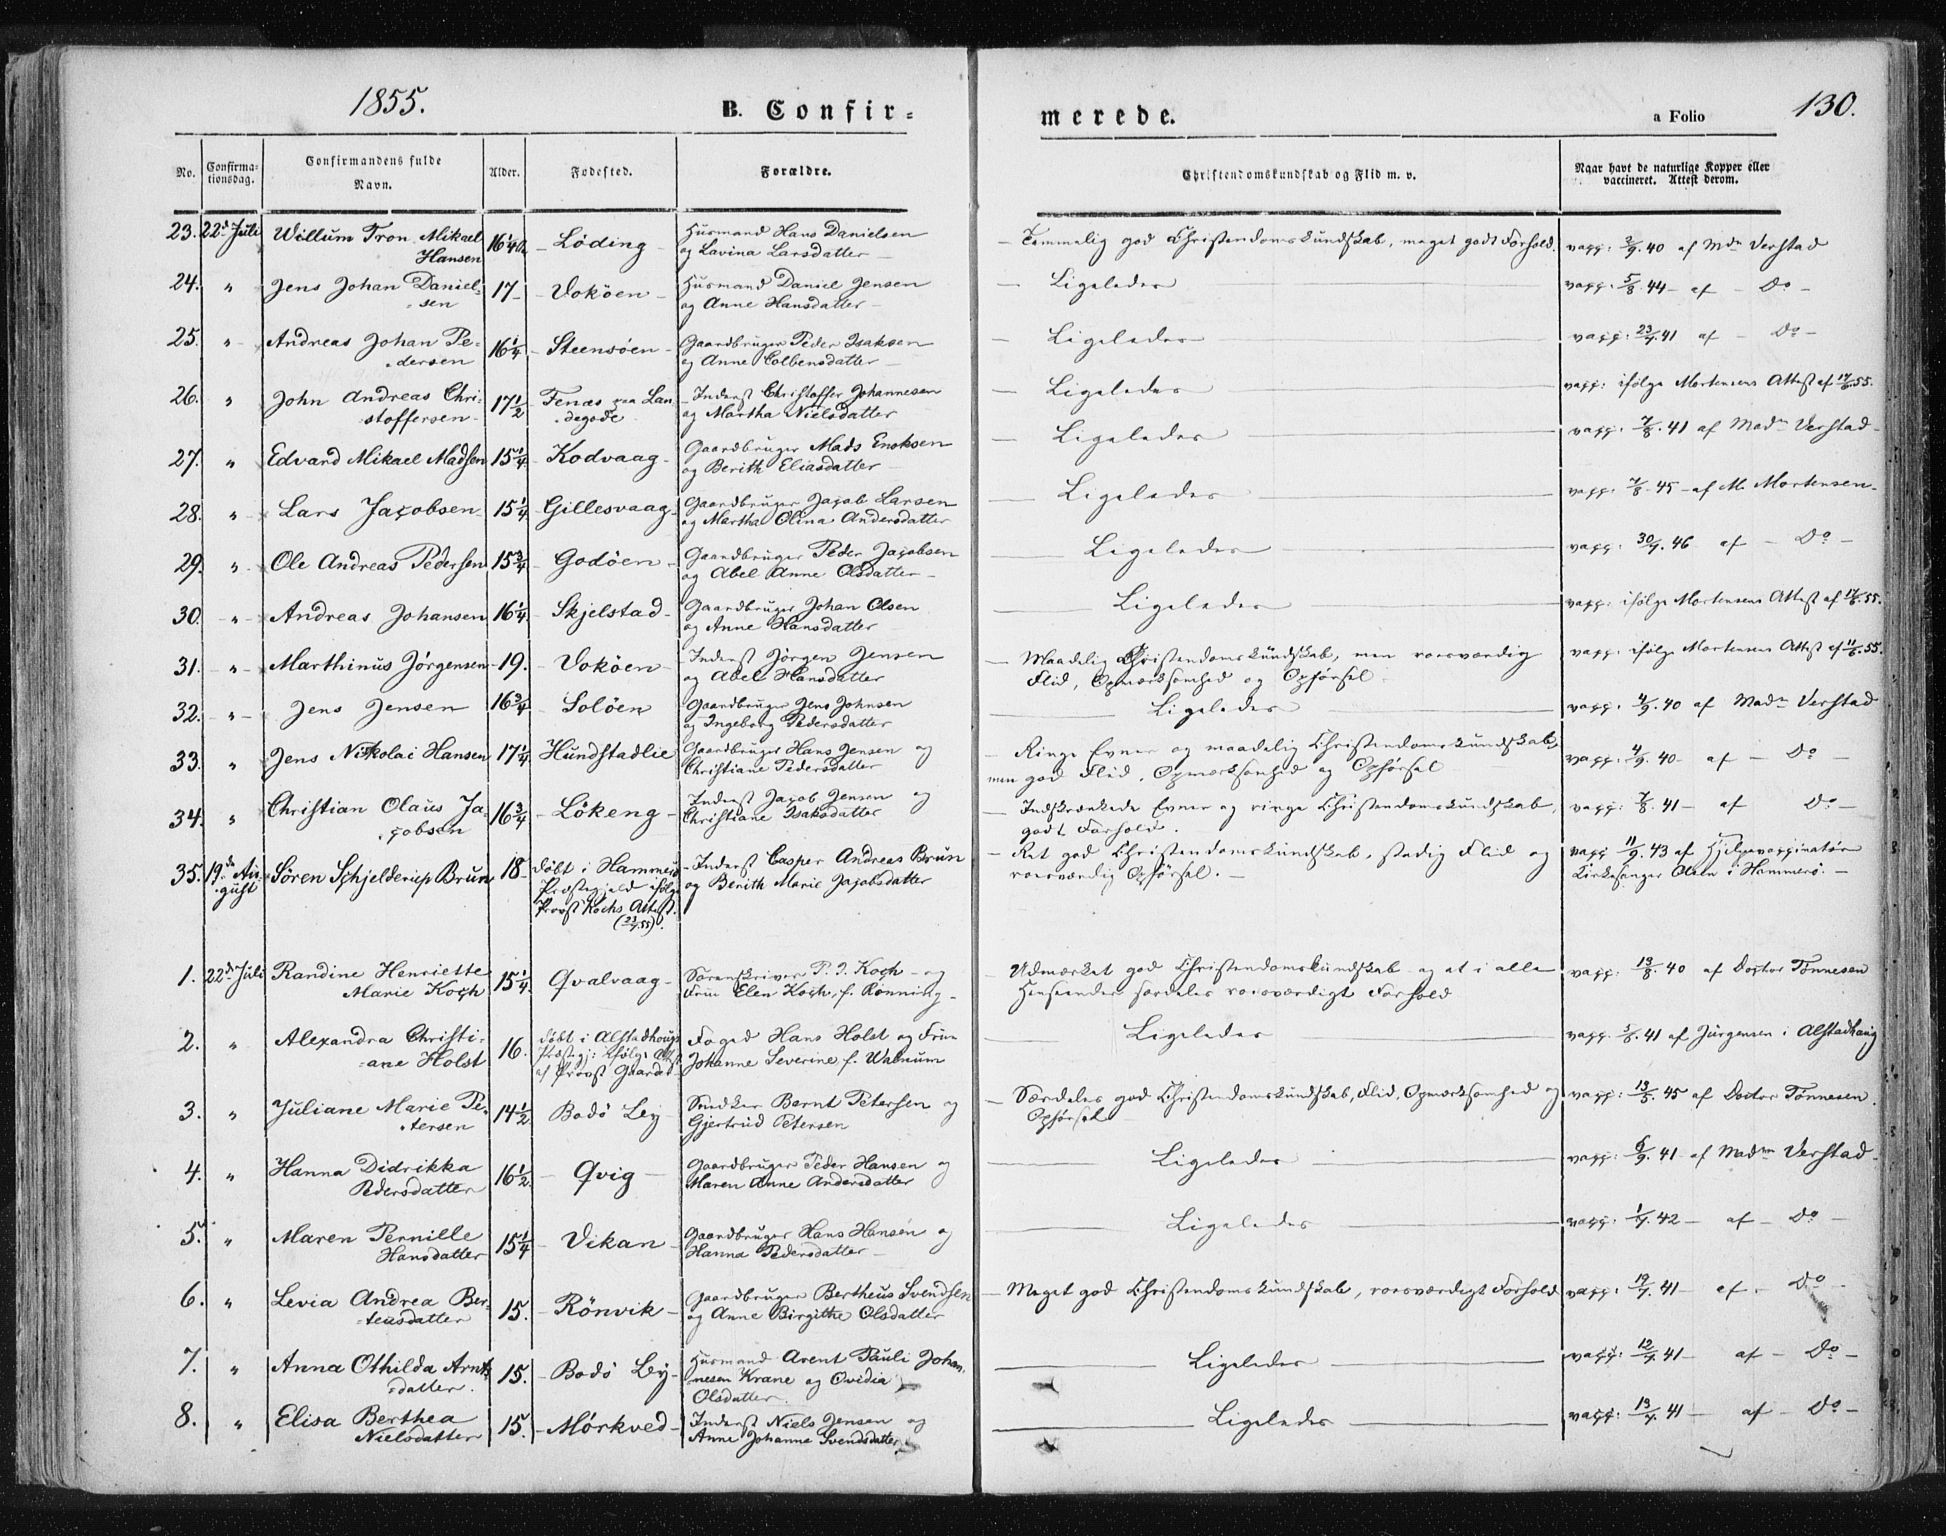 1855.
B. Confir-
merede.
a Folio
130.
No.
Confirma-
tionsdag.
Confirmandens fulde
Navn.
Alder.
Fødested.
Forældre.
Christendomskundskab og Flid m. v.
Naar havt de naturlige Kopper eller
vaccineret. Attest derom.
23. 22d Juli Willum Tron Mikael Hansen 16 1/4 - Löding - Husmand Hans Danielsen
og Lavina Larsdatter -
- Temmelig god Christendomskundskab, meget godt Forhold. vacc: 2/9. 40 af Mdm Verstad
24. " Jens Johan Daniel-
sen 17 - Voköen - Husmand Daniel Jensen
og Anne Hansdatter -
- Ligeledes vacc: 5/8. 44 - af - Do -
25. " Andreas Johan Pe-
dersen 16 1/4 - Steensöen - Gaardbruger Peder Isaksen
og Anne Colbensdatter -
- Ligeledes vacc: 23/7. 41 af - Do -
26. " John Andreas Chri-
stoffersen 17 1/2 - Fenæs paa Lan-
degode - Inderst Christoffer Johannesen
og Martha Nielsdatter -
- Ligeledes vacc: ifölge Mortensens Attest af 55.
27. " Edvard Mikael Madsen 15 1/4 - Kodvaag - Gaardbruger Mads Enoksen
og Berith Eliasdatter -
- Ligeledes vacc: 7/8. 41 af Madm Verstad -
28. " Lars Jacobsen 15 1/4 - Gillesvaag - Gaardbruger Jacob Larsen
og Martha Olina Andersdatter
- Ligeledes vacc: 7/8. 45 - af M. Mortensen -
29. " Ole Andreas Pedersen 15 3/4 - Godöen - Gaardbruger Peder Jacobsen
og Abel Anne Olsdatter -
Ligeledes vacc: 30/7. 46 af - Do -
30. " Andreas Johansen 16 1/4 - Skjelstad - Gaardbruger Johan Olsen
og Anne Hansdatter
Ligeledes vacc: ifölge Mortensens Attest af 55.
31. " Marthinus Jörgensen 19. - Voköen - Inderst Jörgen Jensen
og Abel Hansdatter
- Maadelig Christendomskundskab, men roesværdig
Flid, Opmærksomhed og Opförsel - vacc: ifölge Mortensens Attest af 55.
32. " Jens Jensen 16 3/4 - Solöen Gaardbruger Jens Johnsen
og Ingeborg Pedersdatter
Ligeledes vacc: 4/9. 40 af Madm Verstad
33. " Jens Nikolai Hansen 17 1/4 Hundstadlie Gaardbruger Hans Jensen og
Christiane Pedersdatter
- Ringe Evner og maadelig Christendomskundskab,
men god Flid, Opmærksomhed og Opförsel vacc: 4/9. 40 - af - Do -
34. " Christian Olaus Ja-
cobsen 16 3/4 - Lökeng - Inderst Jacob Jensen og
Christiane Isaksdatter
- Indskrænkede Evner og ringe Christendomskundskab,
godt Forhold. vacc: 7/8. 41 - af Do -
35. 19de Au-
gust Sören Schjelderup Brun 18 - döbt i Hammerö
Præstegjeld ifölge
Provst Kochs Attest.
- Inderst Casper Andreas Brun
og Berith Marie Jacobsdatter
- Ret god Christendomskundskab, stadig Flid og
roesværdig Opförsel. - vacc 11/9. 43 af Hjelpevaccinatör
Kirkesanger Olsen i Hammerö. -
1. 22de Juli Randine Henriette
Marie Koch 15 1/4 Qvalvaag - Sorenskriver P. J. Koch - og
Frue Elen Koch, f. Rönning -
- Udmærket god Christendomskundskab og et i alle
Henseender særdeles roesværdigt Forhold vacc: 13/8. 40 af Doctor Tönnesen
2. " Alexandra Christi-
ane Holst 16. döbt i Alstadhougs
Præstegj: ifölge Att:
af Provst
Foged Hans Holst og Frue
Johanne Severine f. Walnum
Ligeledes vacc: 3/8. 41 af Jürgensen i Alstadhaug
3. " Juliane Marie Pe-
tersen 14 1/2 Bodö Ley - Snedker Bernt Petersen og
Gjertrud Petersen
- Særdeles god Christendomskundskab, Flid, Opmærksomhed og
Opförsel vacc: 13/8. 45 af Doctor Tönnesen.
4. " Hanna Didrikka
Pedersdatter 16 1/2 - Qvig - Gaardbruger Peder Hansen og
Maren Anne Andersdatter
Ligeledes vacc: 6/9. 41 af Madm Verstad -
5. " Maren Pernille
Hansdatter 15 1/4 - Vikan - Gaardbruger Hans Hansen og
Hanna Pedersdatter -
Ligeledes vacc: 1/7. 42 - af - Do -
6. " Levia Andrea Ber-
teusdatter 15. - Rönvik - Gaardbruger Bertheus Svendsen
og Anne Birgithe Olsdatter
- Meget god Christendomskundskab, roesværdigt Forhold vacc: 19/7. 41 - af - Do -
7. " Anna Othilda Arnt-
datter. 15. - Bodö Ley - Husmand Arent Pauli Johan-
nesen Krane og Ovidia
Olsdatter
Ligeledes vacc: 12/7. 41 - af - Do -
8. " Elisa Berthea
Nielsdatter 15. - Mörkved - Inderst Niels Jensen og
Anne Johanne Svendsdatter
Ligeledes vacc: 13/7. 41 - af - Do -